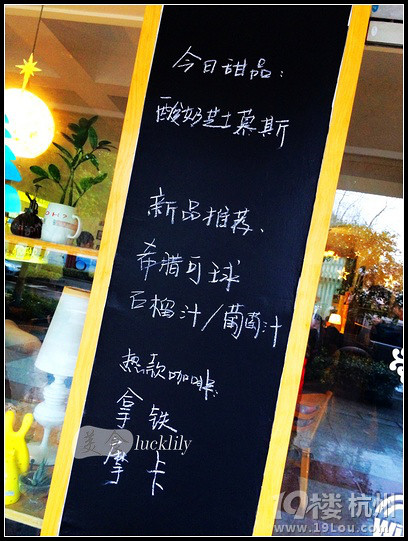 今日甜品：
酸奶芝士慕斯
新品推荐、
希腊可球
石榴汁/葡萄汁
热款咖啡：
拿铁
摩卡
美食
lucklily
19楼杭州
www.19Lou.com